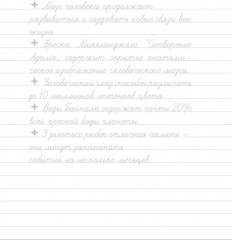 ✦ Мозг человека продолжает
развиваться и создавать новые связи всю
жизнь.
✦ Фреска Микеланджело "Сотворение
Адама" содержит скрытое анатоми-
ческое изображение человеческого мозга.
✦ Человеческий глаз способен различать
до 10 миллионов оттенков цвета.
✦ Воды Байкала содержат почти 20%
всей пресной воды планеты.
✦ У золотых рыбок отличная память –
они могут запоминать
события на несколько месяцев.